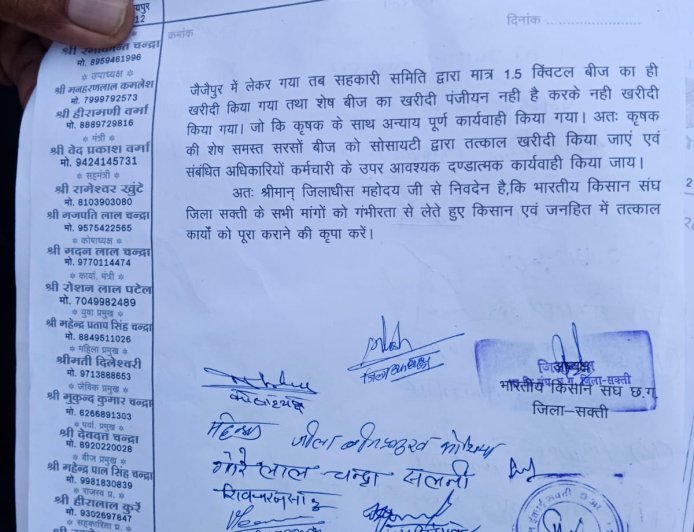 यपुर
12
श्री रमाकान्त चन्द्रा
मो. 8959461996
* उपाध्यक्ष *
श्री मनहरणलाल कमलेश
मो. 7999792573
श्री हीरामणी वर्मा
मो. 8889729816
* मंत्री *
श्री वेद प्रकाश वर्मा
मो. 9424145731
* सहमंत्री *
श्री रामेश्वर खुंटे
मो. 8103903080
श्री गजपति लाल चन्द्रा
मो. 9575422565
* कोषाध्यक्ष *
श्री मदन लाल चन्द्रा
मो. 9770114474
* कार्या. मंत्री *
श्री रोशन लाल पटेल
मो. 7049982489
* युवा प्रमुख *
श्री महेन्द्र प्रताप सिंह चन्द्रा
मो. 8849511026
* महिला प्रमुख *
श्रीमती दिलेश्वरी
मो. 9713888653
* जैविक प्रमुख *
श्री मुकुन्द कुमार चन्द्रा
मो. 6266891303
* पर्या. प्रमुख *
श्री देवदत्त चन्द्रा
मो. 8920220028
* बीज प्रमुख *
श्री महेन्द्र पाल सिंह चन्द्रा
मो. 9981830839
* राजस्व प्र. *
श्री हीरालाल कुर्रे
मो. 9302697647
* सहकारिता प्र. *
क्रमांक
दिनांक
जैजैपुर में लेकर गया तब सहकारी समिति द्वारा मात्र 1.5 क्विंटल बीज का ही
खरीदी किया गया तथा शेष बीज का खरीदी पंजीयन नही है करके नही खरीदी
किया गया। जो कि कृषक के साथ अन्याय पूर्ण कार्यवाही किया गया। अतः कृषक
की शेष समस्त सरसों बीज को सोसायटी द्वारा तत्काल खरीदी किया जाएं एवं
संबंधित अधिकारियों कर्मचारी के उपर आवश्यक दण्डात्मक कार्यवाही किया जाय।
अतः श्रीमान् जिलाधीस महोदय जी से निवदेन है,कि भारतीय किसान संघ
जिला सक्ती के सभी मांगों को गंभीरता से लेते हुए किसान एवं जनहित में तत्काल
कार्यो को पूरा कराने की कृपा करें।
जिलाध्यक्ष
भारतीय किसान संघ छ.ग.
जिला–सक्ती
कोषाध्यक्ष
गोरे लाल चन्द्रा सलनी